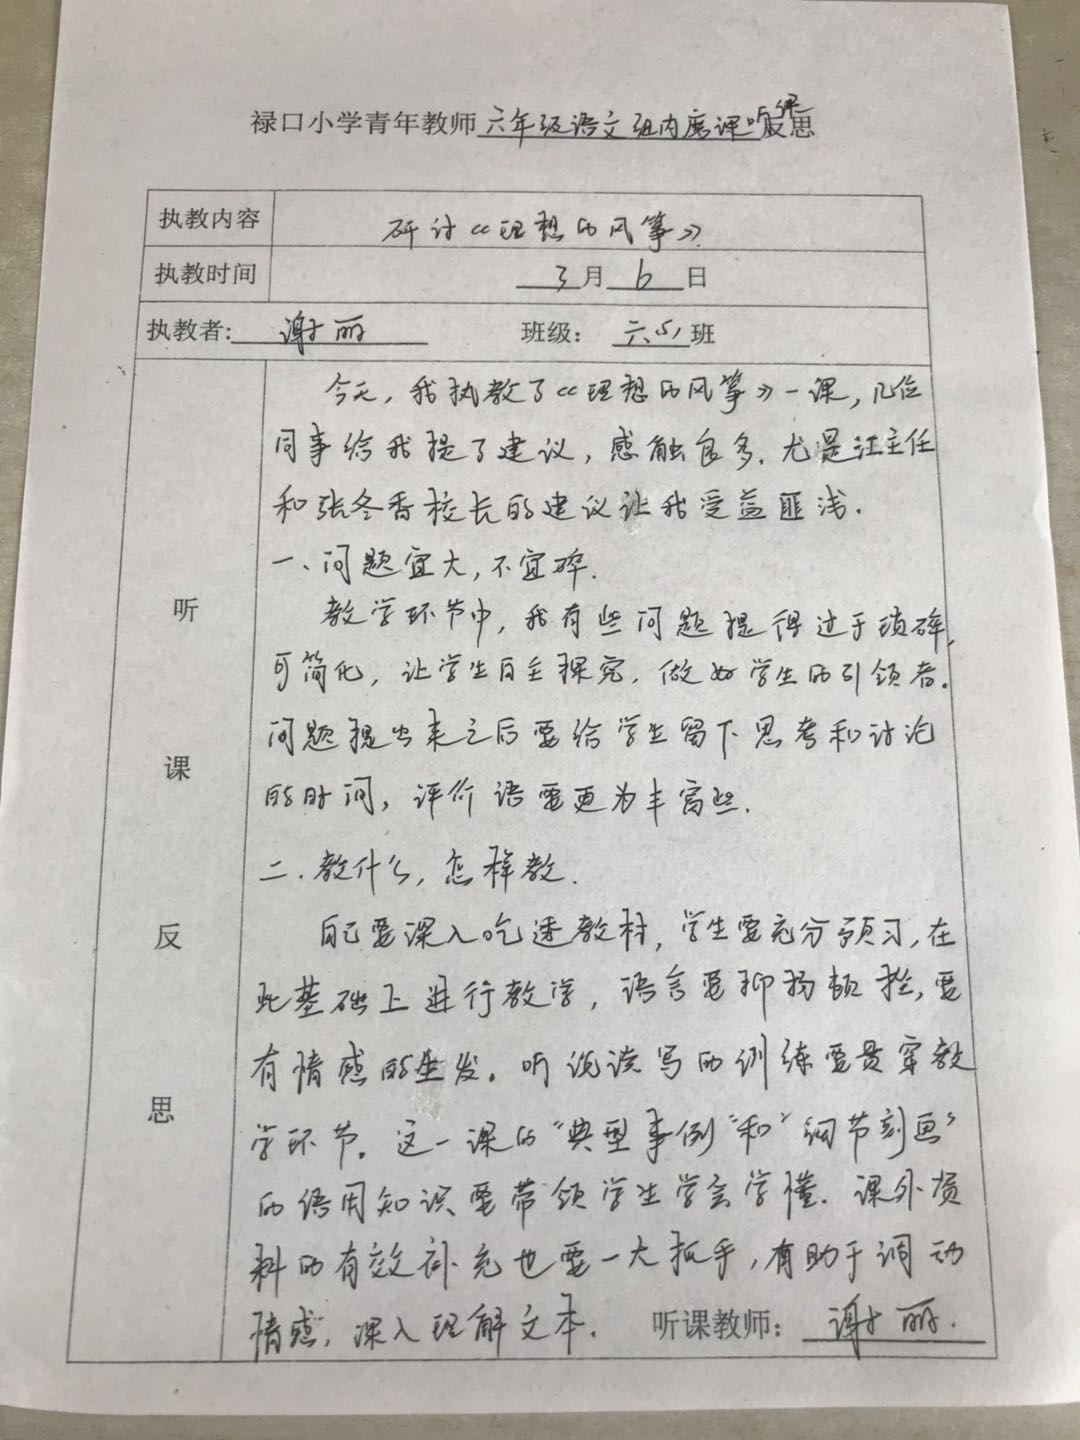 禄口小学青年教师六年级语文组内磨课听课反思
执教内容 研讨《理想的风筝》
执教时间 3月6日
执教者: 谢丽 班级: 六(5)班
听课反思
今天,我执教了《理想的风筝》一课,几位
同事给我提了建议,感触良多.尤是江主任
和张冬香校长的建议让我受益匪浅.
一、问题宜大,不宜碎.
教学环节中,我有些问题提得过于琐碎,
可简化,让学生自主探究.做好学生的引领者.
问题提出来之后要给学生留下思考和讨论
的时间,评价语要更为丰富些.
二.教什么,怎样教.
自己要深入吃透教材,学生要充分预习,在
此基础上进行教学,语言要抑扬顿挫,要
有情感的生发.听说读写的训练要贯穿教
学环节.这一课的“典型事例”和“细节刻画”
的语用知识要带领学生学会学懂.课外资
料的有效补充也要一大抓手,有助于调动
情感,深入理解文本. 听课教师: 谢丽.